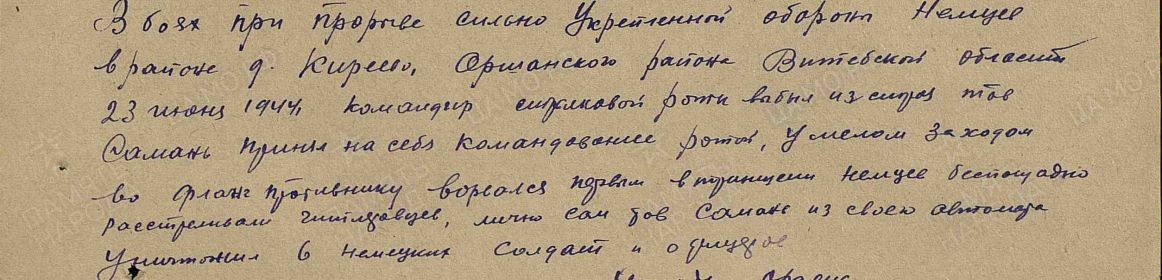 В боях при прорыве сильно Укрепленной обороны Немцев
в районе д. Киреево, Оршанского района Витебской области
23 июня 1944 командир стрелковой роты выбыл из строя тов
Самань принял на себя командование ротой, Умелом заходом
во фланг противнику ворвался первым в траншеи немцев беспощадно
расстреливал гитлеровцев, лично сам тов Самань из своего автомата
Уничтожил 6 немецких солдат и офицеров